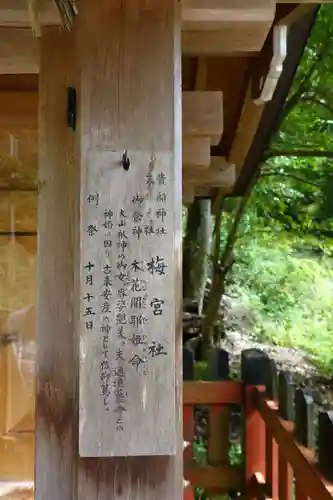 貴船神社
末社
梅宮社
御祭神 木花開耶姫命
大山祇神の御女、容姿艶美。夫、命との
神婚に因り、古来安産の神として信仰篤し。
例祭 十月十五日